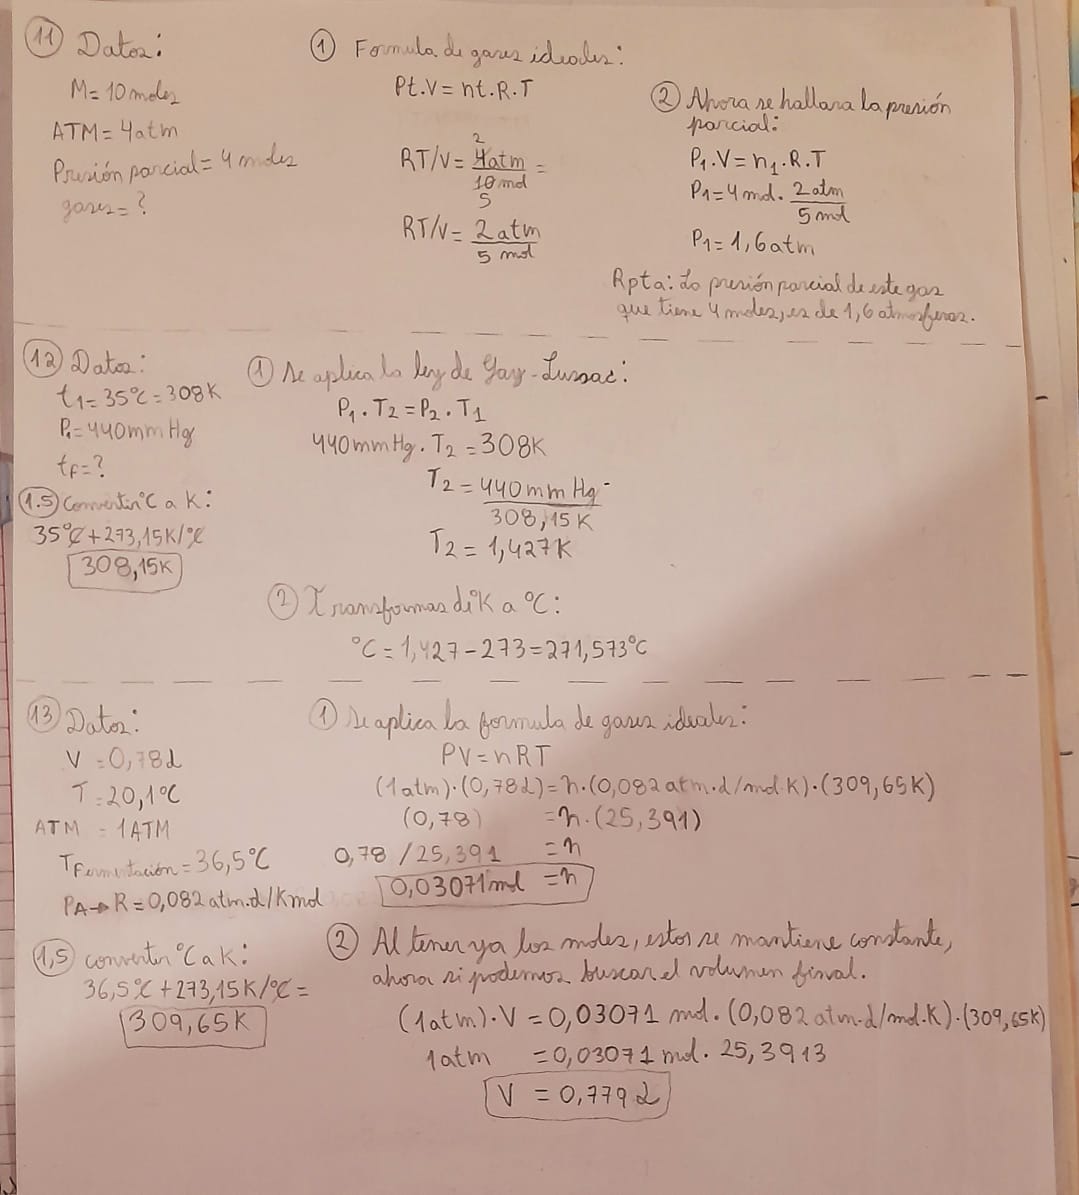 11 Datos:
M= 10 moles
ATM= 4atm
Presión parcial= 4 moles
gases= ?
1 Formula de gases ideales:
Pt.V = nt.R.T
RT/V= 4atm =
2
10 mol
5
RT/V= 2 atm
5 mol
2 Ahora se hallara la presión
parcial:
P1.V= n1.R.T
P1= 4 mol. 2 atm
5 mol
P1= 1,6 atm
Rpta: La presión parcial de este gas
que tiene 4 moles, es de 1,6 atmosferas.
12 Datos:
t1= 35°C = 308K
P1= 440mm Hg
tF= ?
1.5 Convertir °C a K:
35°C + 273,15K/°C
308,15K
1 Se aplica la ley de Gay-Lussac:
P1 . T2 = P2 . T1
440mmHg. T2 = 308K
T2 = 440 mm Hg
308,15K
T2 = 1,427K
2 Transformas di°K a °C:
°C = 1,427 - 273 = 271,573°C
13 Datos:
V = 0,78L
T = 20,1°C
ATM = 1ATM
TFermentación = 36,5°C
PA→ R = 0,082 atm.L/Kmol
1,5 convertir °C a K:
36,5°C + 273,15K/°C =
309,65K
1 Se aplica la formula de gases ideales:
PV = nRT
(1atm).(0,78L) = n.(0,082 atm.L/mol.K).(309,65K)
(0,78) = n.(25,391)
0,78 / 25,391 = n
0,03071mol = n
2 Al tener ya los moles, estos se mantiene constante,
ahora si podemos buscar el volumen final.
(1atm).V = 0,03071 mol.(0,082 atm.L/mol.K).(309,65K)
1atm = 0,03071 mol. 25,3913
V = 0,779L